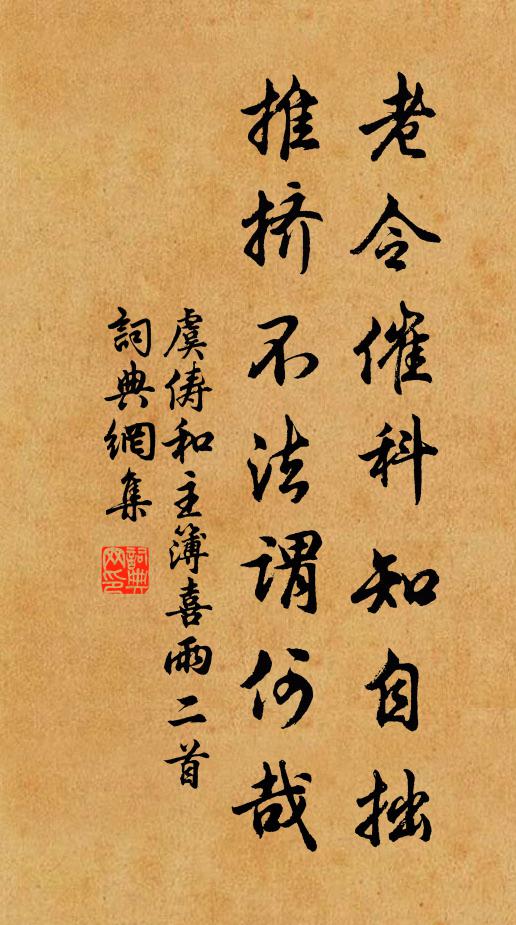 老令催科知自拙
推挤不法谓何哉
虞俦和主簿喜雨二首
詞典網集
詞典網印